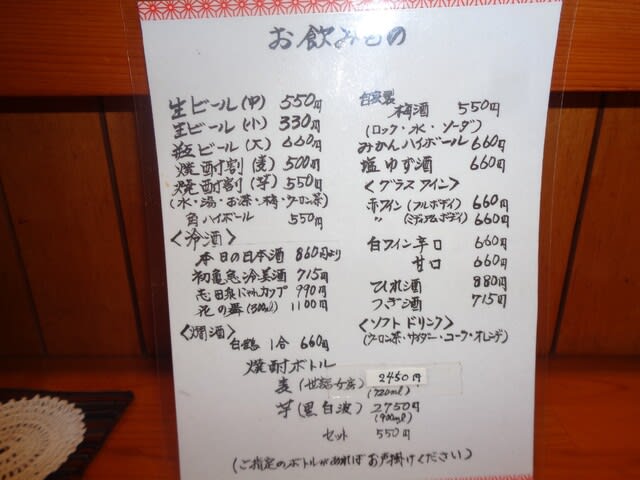 お飲みもの
生ビール(中) 550円
生ビール(小) 330円
瓶ビール(大) 660円
焼酎割(麦) 500円
焼酎割(芋) 550円
(水・湯・お茶・梅・ウーロン茶)
角ハイボール 550円
<冷酒>
本日の日本酒 860円より
初亀急冷美酒 715円
志田泉にゃんカップ 990円
花の舞(300ml) 1100円
<燗酒>
白鶴 1合 660円
自家製
梅酒 550円
(ロック・水・ソーダ)
みかんハイボール 660円
塩ゆず酒 660円
<グラスワイン>
赤ワイン(フルボディ) 660円
〃 (ミディアムボディ) 660円
白ワイン辛口 660円
甘口 660円
ひれ酒 880円
つぎ酒 715円
<ソフトドリンク>
(ウーロン茶・サイダー・コーラ・オレンヂ)
焼酎ボトル
麦(世話女房) 2450円
(720ml)
芋(黒白波) 2750円
(900ml)
セット 550円
(ご指定のボトルがあればお声掛けください)